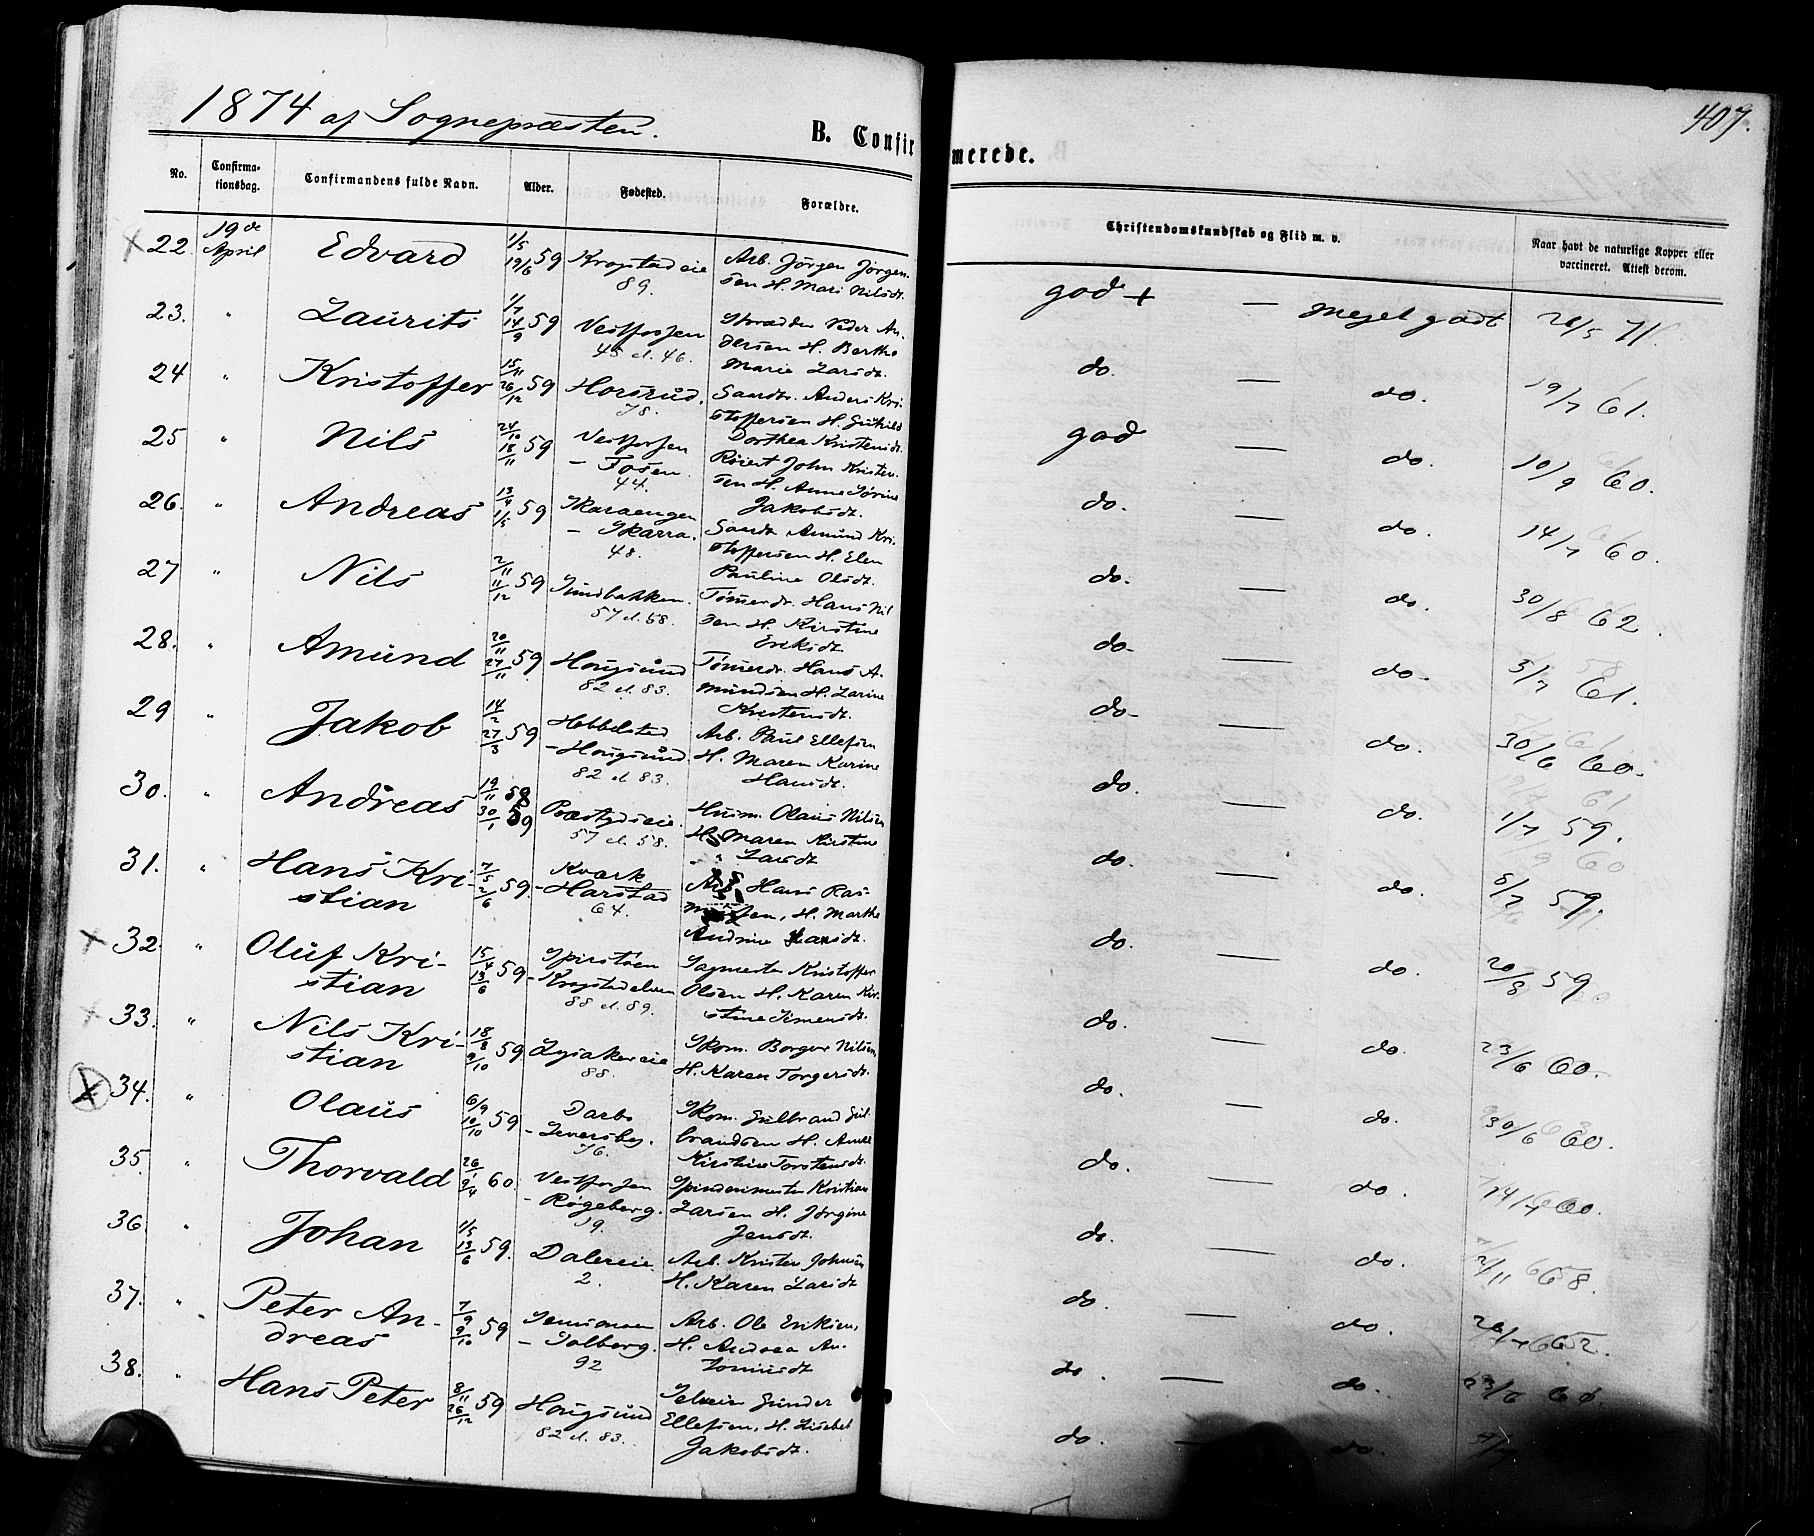 1874 af Sognepræsten.
B. Confir
merede.
407.
No.
Confirma-
tionsdag.
Confirmandens fulde Navn.
Alder.
Fødested.
Forældre.
Christendomskundskab og Flid m. v.
Naar havt de naturlige Kopper eller
vaccineret. Attest derom.
22. 19de April Edvard 1/5 19/6 59 Krogstadeie 89. Arb. Jørgen Jørgen-
sen H. Mari Nilsdt. god + — meget godt 28/5 71.
23. " Laurits 1/7 14/9 59 Vestfossen 45 el. 46. Skrædder Peder An-
dersen H. Berthe
Marie Larsdt. do. — do. 19/7 61.
24 " Kristoffer 15/11 26/12 59 Horsrud. 78. Saardr. Anders Kri-
stoffersen H. Gunhild
Dorthea Kristensdt. god — do. 10/9 60.
25 " Nils 24/10 18/11 59 Vestfossen
- Fosen. 44. John Kristen-
sen H. Anne Sørine
Jakobsdt. do. — do. 14/7 60.
26. " Andreas 13/4 1/5 59 Skaraengen
- Skarra. 48. Saardr. Amund Kri-
stoffersen H. Elen
Pauline Olsdt. do. — do. 30/8 62.
27 " Nils 2/11 11/12 59 57 el. 58. Tømmerdr. Hans Nil
sen H. Kirstine
Eriksdt. do. — do. 5/7 61.
28. " Amund 20/11 27/11 59 Hougsund 82 el. 83. Tømmerdr. Hans A-
mundsen H. Larine
Kristensdt. do. — do. 30/6 60.
29 " Jakob 14/2 27/3 59 Hebbelstad
- Hougsund. 82 el. 83. Arb. Paul Ellefsen
H. Maren Karine
Hansdt. do. — do. 1/7 59.
30. " Andreas 19/11 58 30/1 59 Præstgdseie. 57 el. 58. Husm. Olaus Nilsen
H. Maren Kirstine
Larsdt do. — do. 8/7 59.
31. " Hans Kri-
stian 7/5 2/6 59. Kværk
- Harstad 64. Arb. Hans Ras-
mussen, H. Marthe
Andrine Larsdt. do. — do. 20/8 59.
32. " Oluf Kri-
stian 15/4 13/6 59 Spirstøen
- Krogstadelven 88 el. 89. Sagmester Kristoffer
Olsen H. Karen Kir-
stine Simensdt. do. — do. 23/6 60.
33. " Nils Kri-
stian 18/8 9/10 59 Lysakereie 88. Skom. Borger Nilsen,
H. Karen Torgersdt. do. — do. 30/6 60.
34. " Olaus 6/9 10/10 59 Darbo
- Iversby. 76. Skom. Gulbrand Gul-
brandsen H. Anne
Kirstine Torstensdt. do. — do. 60.
35. " Thorvald 26/1 9/4 60. Vestfossen
- Røgeberg. 19. Spindemester Kristian
Larsen H. Jørgine
Jensdt. do. — do. 2/11 68.
36 " Johan 1/5 13/6 59. Dalereie 2. Arb. Kristen Johnsen
H. Karen Larsdt do. — do. 62.
37. " Peter An-
dreas 7/9 9/10 59 - Solberg. 92 Arb. Ole Eriksen,
H. Andrea An-
tonusdt do. — do. 23/6 60.
38. " Hans Peter 8/11 26/12 59 Hougsund 82 el. 83. Selveier Gunder
Ellefsen, H. Lisabet
Jakobsdt. do. — do.